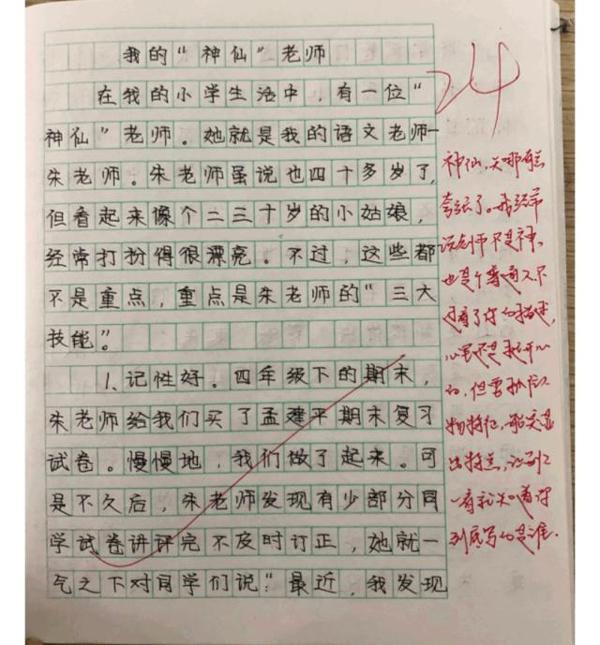 我的“神仙”老师
24
在我的小学生活中，有一位“
神仙”老师。她就是我的语文老师—
朱老师。朱老师虽说也四十多岁了，
但看起来像个二三十岁的小姑娘，
经常打扮得很漂亮。不过，这些都
不是重点，重点是朱老师的“三大
技能”。
1、记性好。四年级下的期末，
朱老师给我们买了孟建平期末复习
试卷。慢慢地，我们做了起来。可
是不久后，朱老师发现有少部分同
学试卷讲评完不及时订正，她就一
气之下对同学们说：“最近，我发现
神仙，
夸张了。我经常
说老师不是神，
也是个普通人，不
过看了你的描述，
心里还是挺开心
的，但要抓住人
物特征，
出特点，让别人
一看就知道你
到底写的是谁。